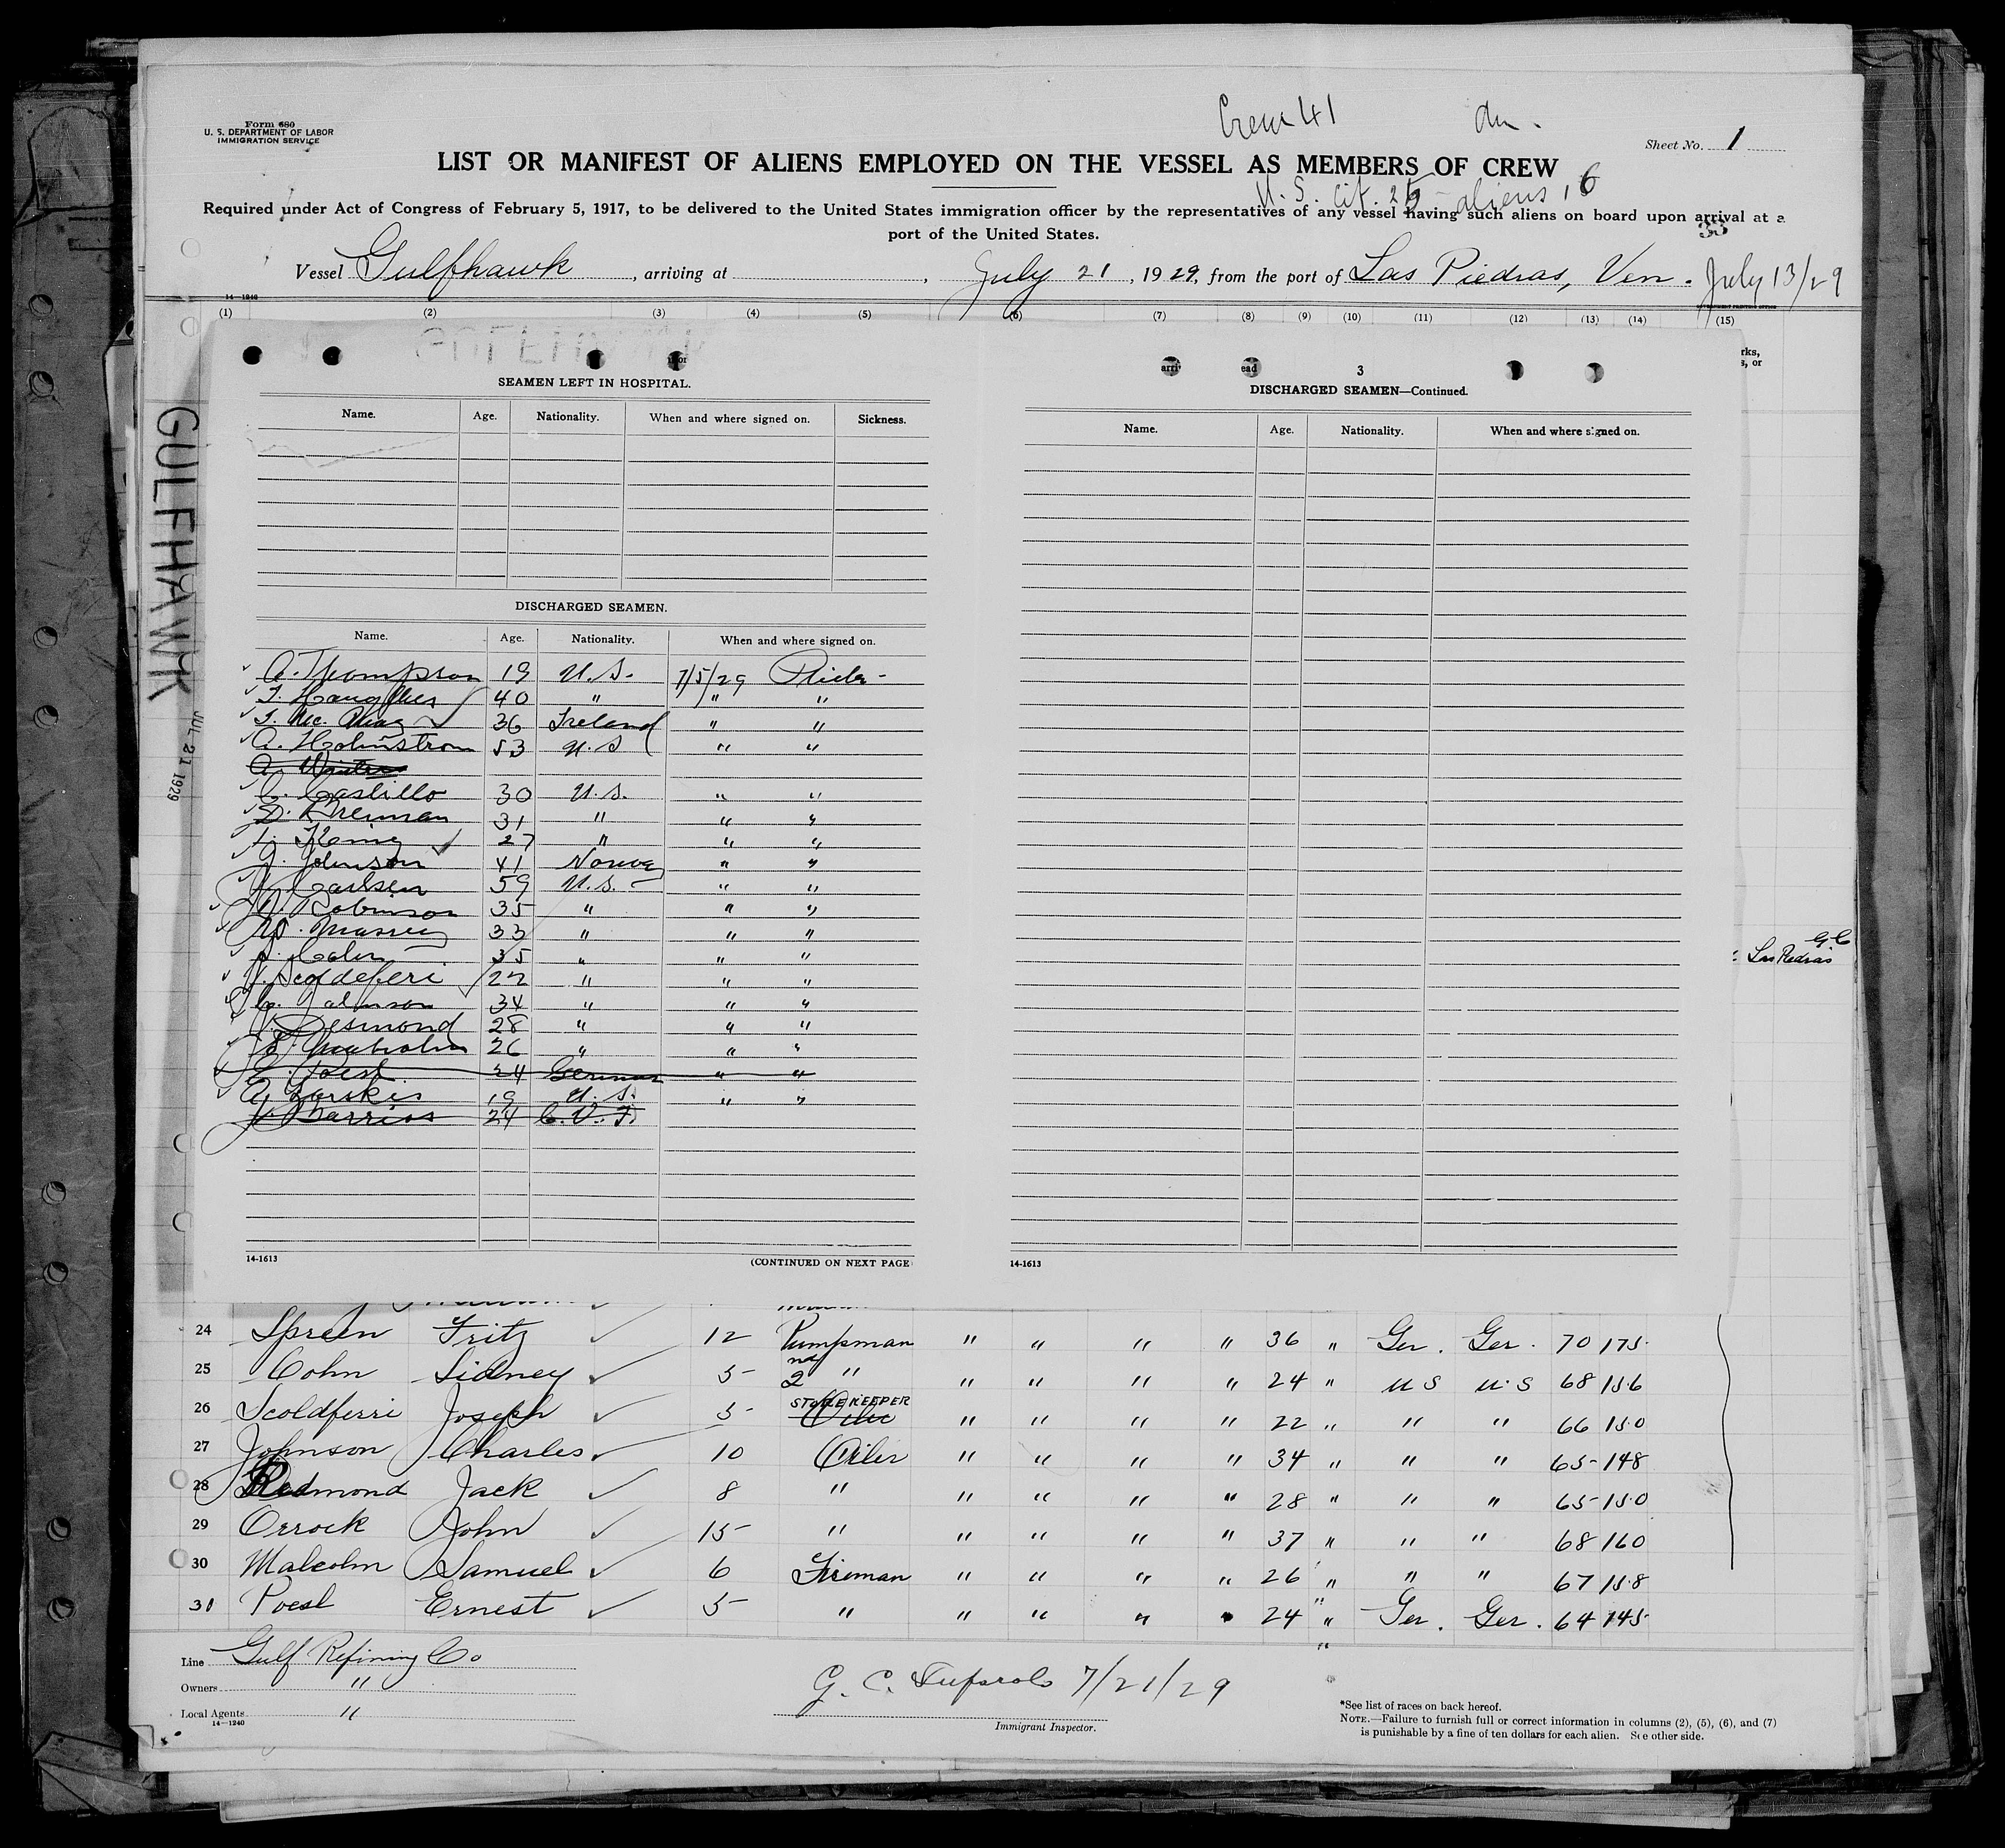 Form 680
U. S. DEPARTMENT OF LABOR
IMMIGRATION SERVICE
Crew 41
Sheet No. 1
LIST OR MANIFEST OF ALIENS EMPLOYED ON THE VESSEL AS MEMBERS OF CREW
U. S. cit. 25 - aliens 16
Required under Act of Congress of February 5, 1917, to be delivered to the United States immigration officer by the representatives of any vessel having such aliens on board upon arrival at a
port of the United States.
Vessel Gulfhawk, arriving at , July 21, 1929, from the port of Las Piedras, Ven. July 13/29
14—1240
(1) (2) (3) (4) (5) (6) (7) (8) (9) (10) (11) (12) (13) (14) (15)
GULFHAWK
JUL 21 1929
SEAMEN LEFT IN HOSPITAL.
Name. Age. Nationality. When and where signed on. Sickness.
DISCHARGED SEAMEN.
Name. Age. Nationality. When and where signed on.
A. Thompson 19 U. S. 7/5/29
40 " " "
36 Ireland " "
A. Holmstrom 53 U. S " "
C. Castillo 30 U. S. " "
31 " " "
27 " " "
J. Johnson 41 Norway " "
Carlsen 59 U. S. " "
Robinson 35 " " "
33 " " "
35 " " "
J. Scoldeferi 22 " " "
C. Johnson 34 " " "
J. Desmond 28 " " "
26 " " "
E. Poesl 24 German " "
19 U. S. " "
J. Harriss 24
14-1613 (CONTINUED ON NEXT PAGE)
3
DISCHARGED SEAMEN—Continued.
Name. Age. Nationality. When and where signed on.
14-1613
rks,
s, or
Las Piedras
24 Spreen Fritz 12 Pumpman " " " " 36 " Ger. Ger. 70 175
25 Cohn Sidney 5 2nd " " " " " 24 " U S U. S 68 156
26 Scoldferri Joseph 5 STOREKEEPER Oiler " " " " 22 " " " 66 150
27 Johnson Charles 10 Oiler " " " " 34 " " " 65 148
28 Redmond Jack 8 " " " " " 28 " " " 65 150
29 Orrock John 15 " " " " " 37 " " " 68 160
30 Malcolm Samuel 6 Fireman " " " " 26 " " " 67 158
31 Poesl Ernest 5 " " " " " 24 " Ger. Ger. 64 145
Line Gulf Refining Co
Owners "
Local Agents "
14—1240
G. C. 7/21/29
Immigrant Inspector.
*See list of races on back hereof.
NOTE.—Failure to furnish full or correct information in columns (2), (5), (6), and (7)
is punishable by a fine of ten dollars for each alien. See other side.